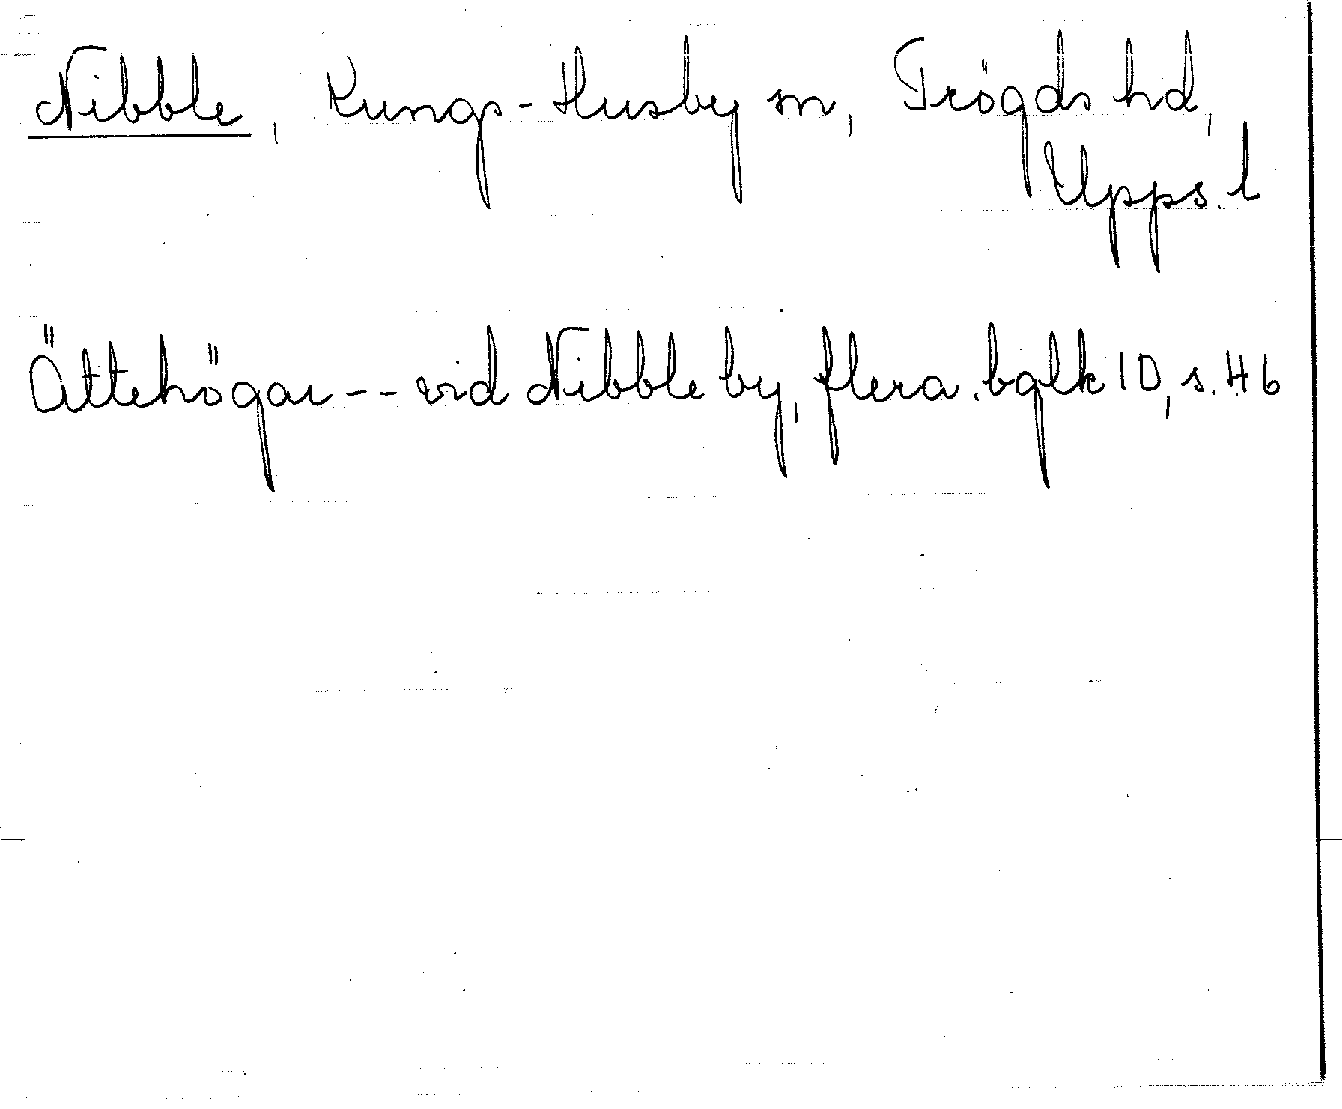 Nibble, Kungs-Husby sn, Trögds hd,
Upps. l
Ättehögar -- vid Nibble by, flera. bglk 10, s. 46